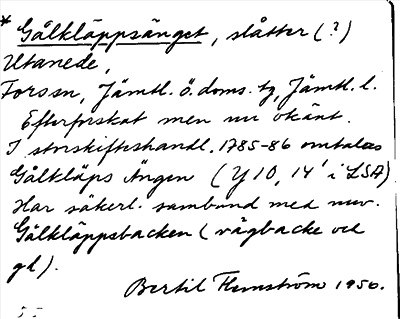 * Gålkläppsänget, slåtter (?)
Utanede,
Forssn, Jämtl. ö. doms. tg, Jämtl. l.
Efterforskat men nu okänt.
I storskifteshandl. 1785-86 omtalas
Gålkläps Ängen (Y10, 14' i LSA)
Har säkerl. samband med nuv.
Gålkläppsbacken (vägbacke och
gd).
Bertil Flemström 1950.